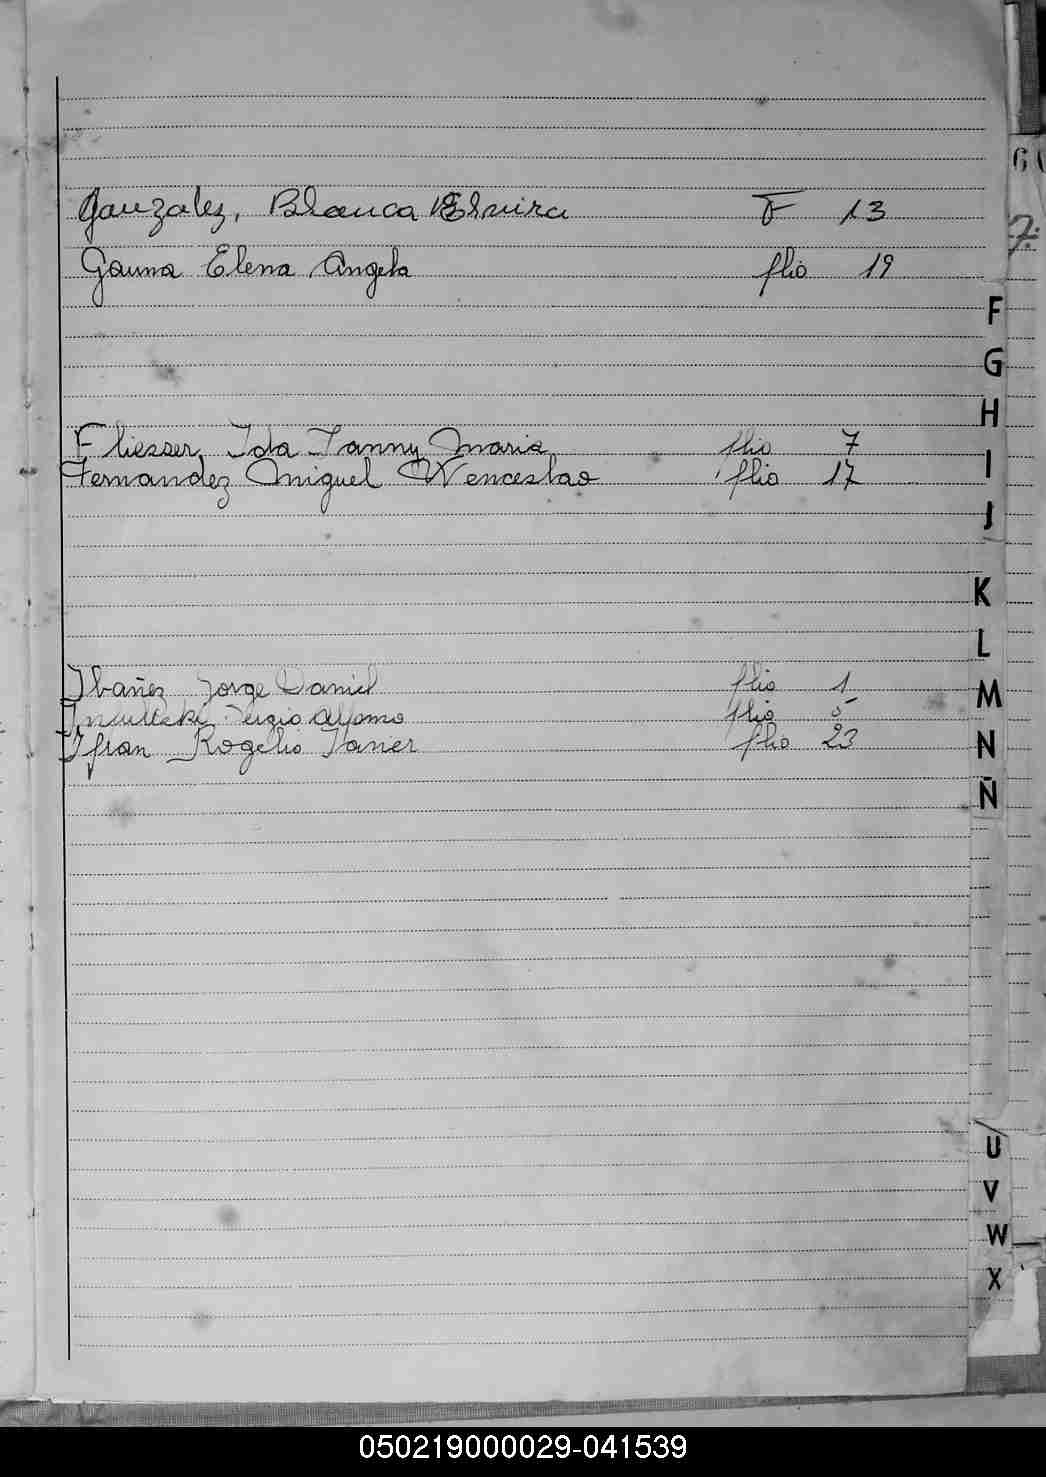 Gauzalez, Blauca Elmira F 13
Gauna Elena Angela flio 19
Fliesser Ida Fanny Maria flio 7
Fernandez Miguel Wenceslao flio 17
Ibañez Jorge Daniel flio 1
Sergio Alfonso flio 5
Ifran Rogelio Javier flio 23
F
G
H
I
J
K
L
M
N
Ñ
U
V
W
X
050219000029-041539